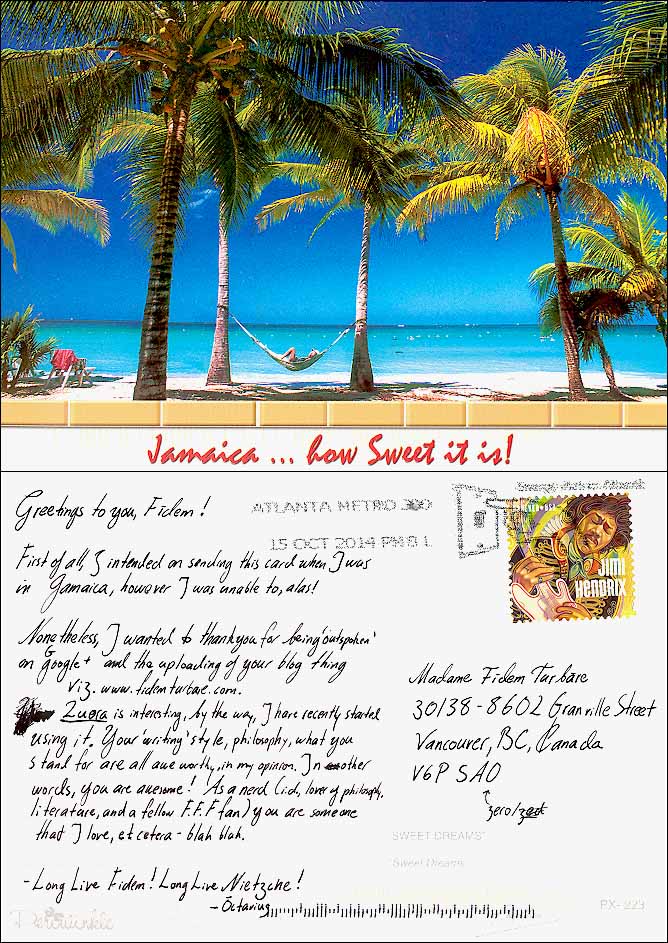 Jamaica ... how Sweet it is!
Greetings to you, Fidem!
ATLANTA METRO 300
15 OCT 2014 PM 8 L
JIMI
HENDRIX
First of all, I intended on sending this card when I was
in Jamaica, however I was unable to, alas!
Nonetheless, I wanted to thank you for being 'outspoken'
on Google+ and the uploading of your blog thing
viz. www.fidemturbare.com.
Zuora is interesting, by the way, I have recently started
using it. Your 'writing' style, philosophy, what you
stand for are all awe worthy, in my opinion. In other
words, you are awesome! As a nerd (i.d., lover of philosophy,
literature, and a fellow F.F.F fan) you are someone
that I love, et cetera - blah blah.
- Long Live Fidem! Long Live Nietzche!
- Octavius
Madame Fidem Turbare
30138-8602 Granville Street
Vancouver, BC, Canada
V6P SA0
zero/
SWEET DREAMS"
"Sweet Dreams
PX-223